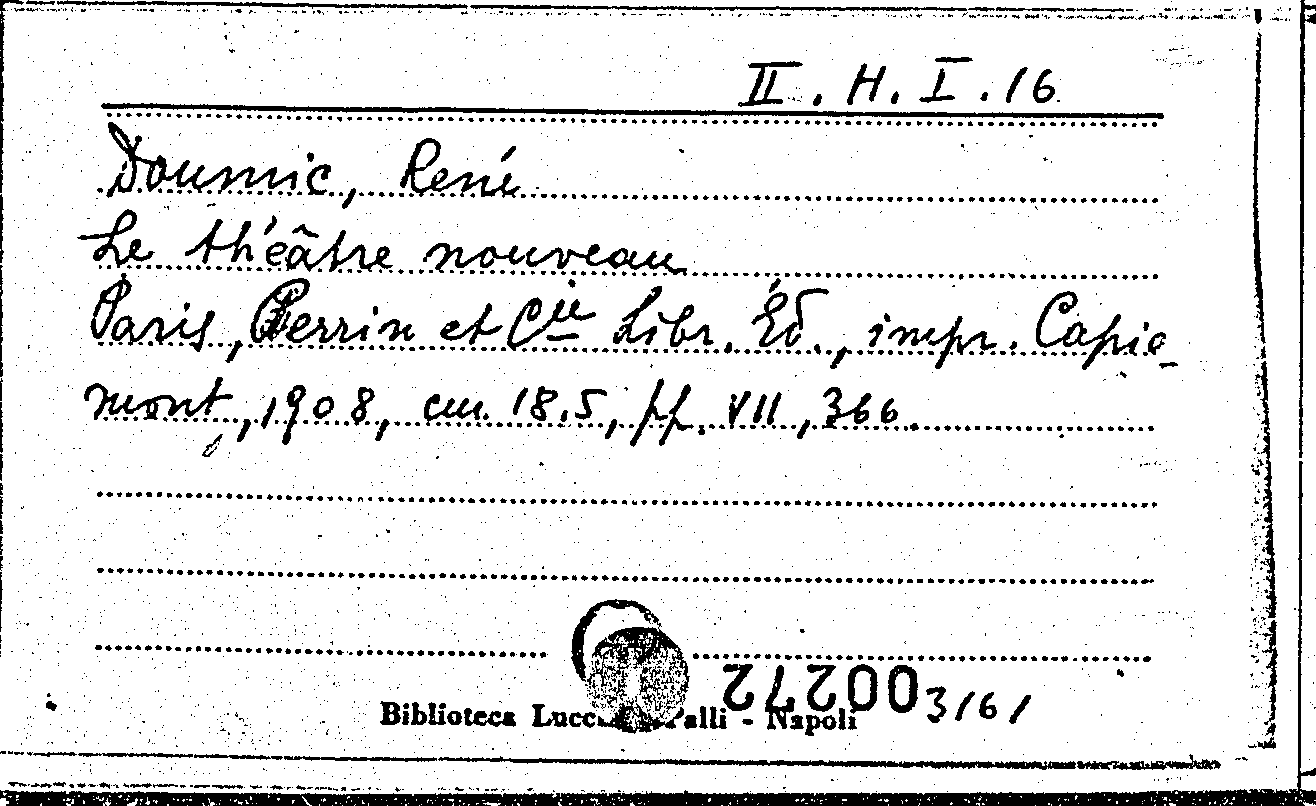 II. H. I. 16
Doumic, René
Le théâtre nouveau
Paris, Perrin et Cie Libr. Éd., impr. Capio-
mont, 1908, cm. 18.5, pp. VII, 366.
Biblioteca Palli - Napoli